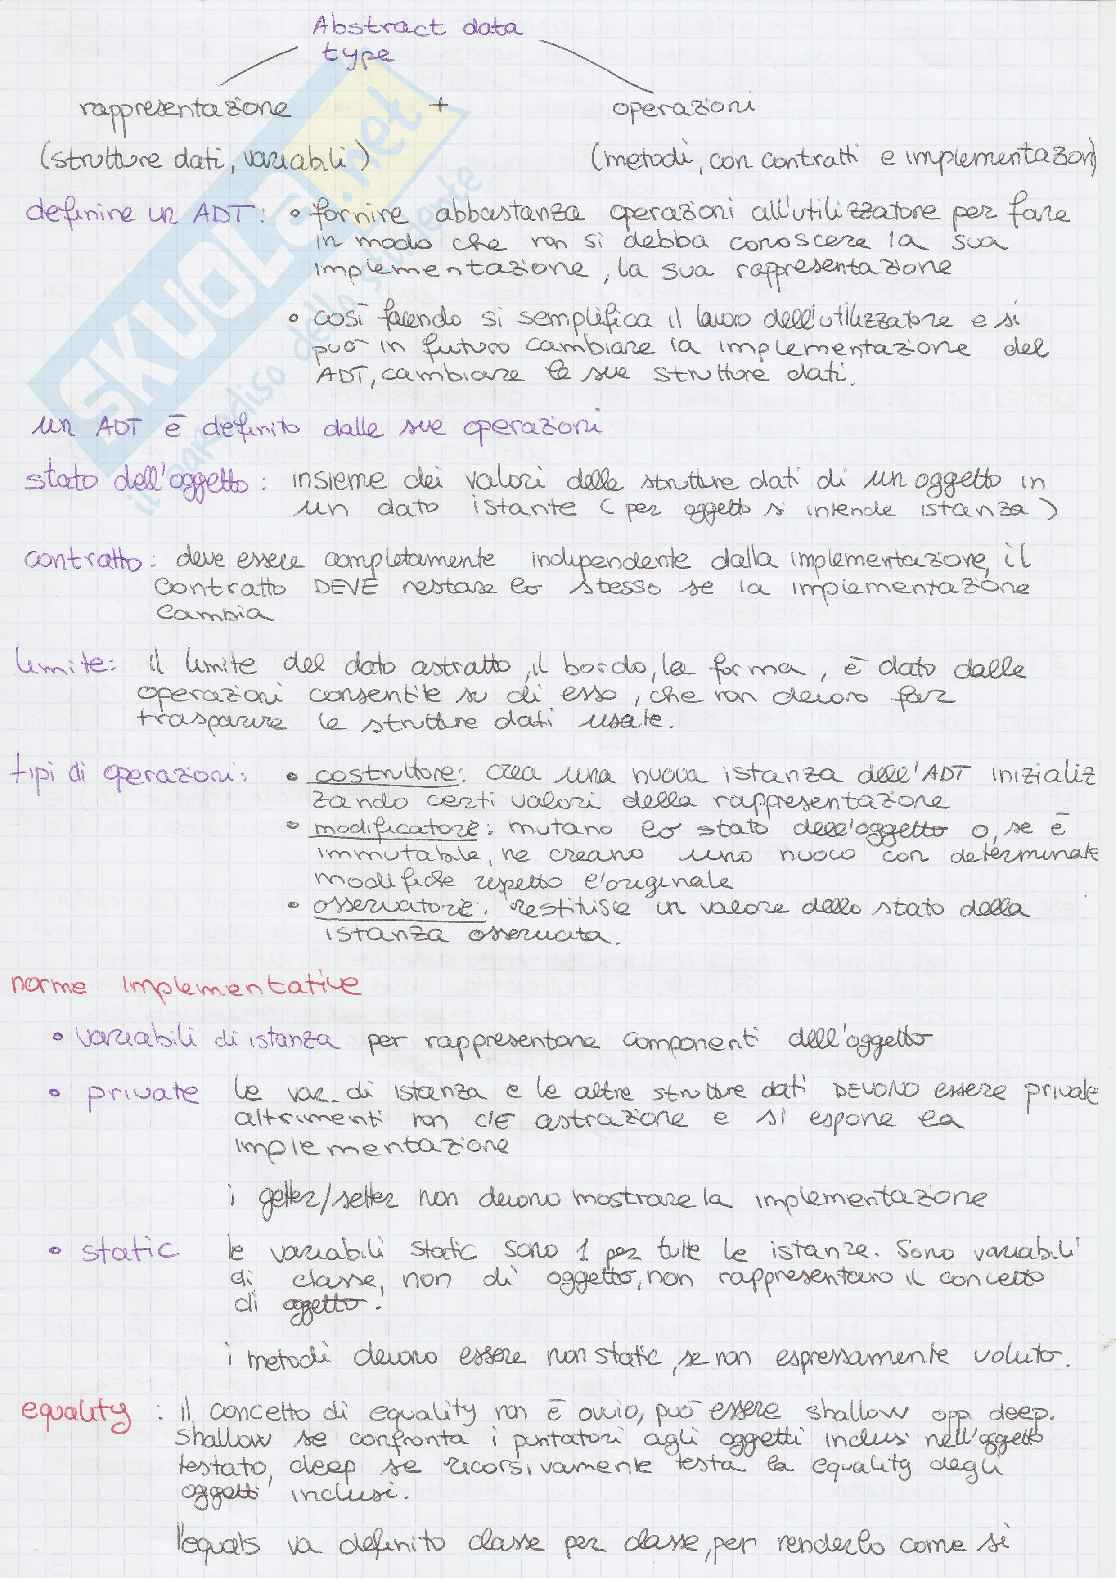 Abstract data
type
rappresentazione + operazioni
(strutture dati, variabili) (metodi, con contratti e implementazioni)
definire un ADT: • fornire abbastanza operazioni all'utilizzatore per fare
in modo che non si debba conoscere la sua
implementazione, la sua rappresentazione
• così facendo si semplifica il lavoro dell'utilizzatore e si
può in futuro cambiare la implementazione del
ADT, cambiare le sue strutture dati.
un ADT è definito dalle sue operazioni
stato dell'oggetto: insieme dei valori delle strutture dati di un oggetto in
un dato istante (per oggetto si intende istanza)
contratto: deve essere completamente indipendente dalla implementazione, il
contratto DEVE restare lo stesso se la implementazione
cambia
limite: il limite del dato astratto, il bordo, la forma, è dato dalle
operazioni consentite su di esso, che non devono far
trasparire le strutture dati usate.
tipi di operazioni: • costruttore: crea una nuova istanza dell'ADT inizializ
zando certi valori della rappresentazione
• modificatore: mutano lo stato dell'oggetto o, se è
immutabile, ne creano uno nuovo con determinate
modifiche rispetto l'originale
• osservatore: restituisce un valore dello stato della
istanza osservata.
norme implementative
• variabili di istanza per rappresentare componenti dell'oggetto
• private le var. di istanza e le altre strutture dati DEVONO ESSERE private
altrimenti non c'è astrazione e si espone la
implementazione
i getter/setter non devono mostrare la implementazione
• static le variabili static sono 1 per tutte le istanze. Sono variabili
di classe, non di oggetto, non rappresentano il concetto
di oggetto.
i metodi devono essere non static, se non espressamente voluto.
equality: il concetto di equality non è ovvio, può essere shallow opp deep.
Shallow se confronta i puntatori agli oggetti inclusi nell'oggetto
testato, deep se ricorsivamente testa la equality degli
oggetti inclusi.
l'equals va definito classe per classe, per renderlo come si
SKUOLA.net
il paradiso dello studente